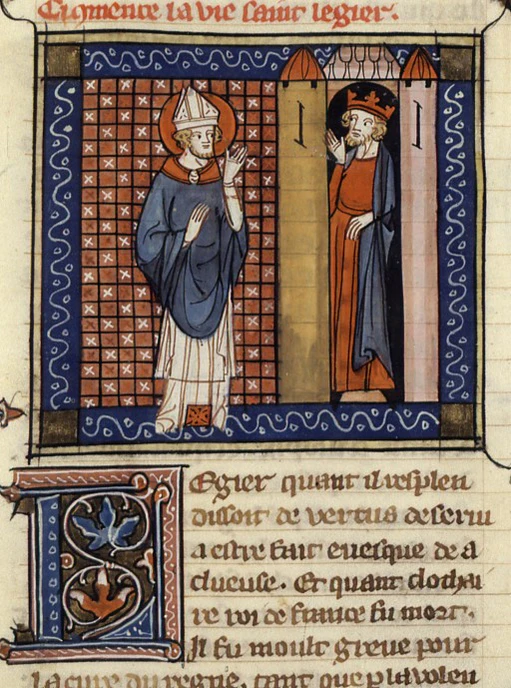 Ci commence la vie saint legier.
Legier quant il resplen
dissoit de vertus deserui
a estre fait euesque de a
clueuse. Et quant clothai
re roi de france fu mort.
Il fu moult greue pour
la cure du regne. tant que p la volen